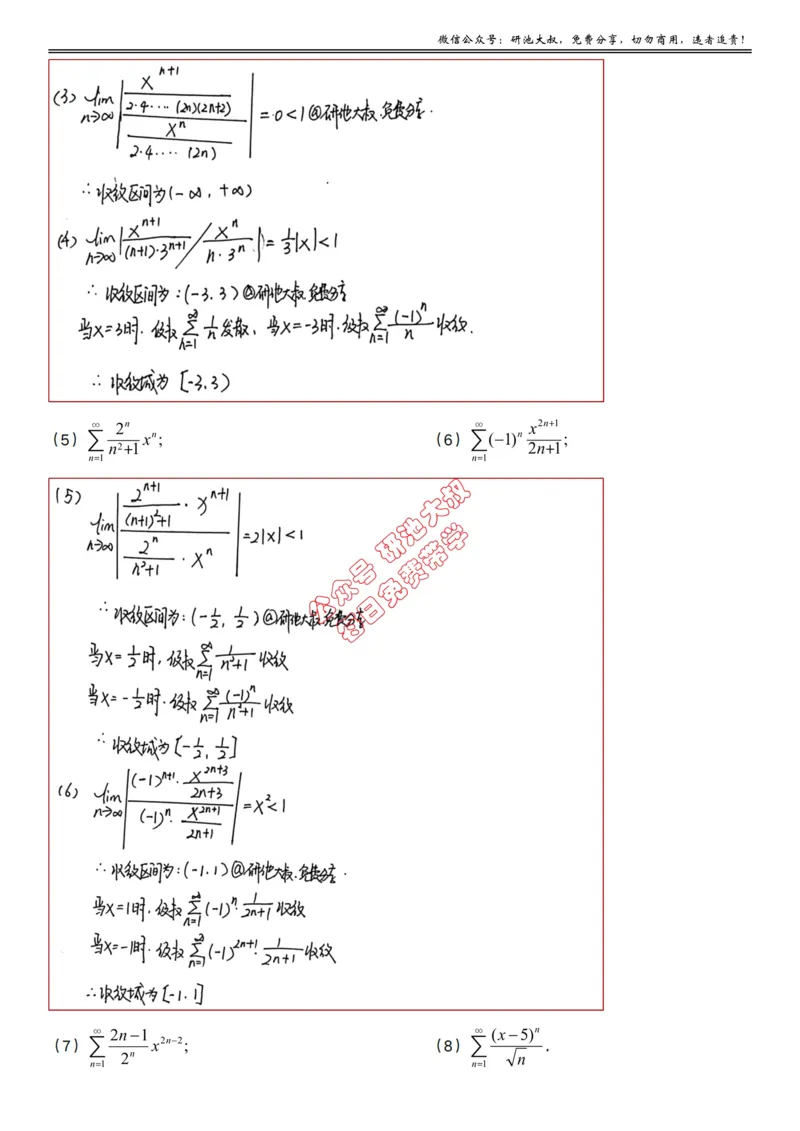 微信公众号：研池大叔，免费分享，切勿商用，违者追责！
(3) lim n→∞ | x^{n+1} / (2·4····(2n)(2n+2)) / ( x^n / (2·4····(2n)) ) | = 0 < 1 @研池大叔.免费分享.
∴ 收敛区间为(-∞, +∞)
(4) lim n→∞ | x^{n+1} / ((n+1)·3^{n+1}) / ( x^n / (n·3^n) ) | = 1/3 |x| < 1
∴ 收敛区间为:(-3, 3) @研池大叔 免费分享
当x=3时. 级数 ∑_{n=1}^{∞} 1/n 发散, 当x=-3时.级数 ∑_{n=1}^{∞} (-1)^n / n 收敛.
∴ 收敛域为 [-3, 3)
(5) ∑_{n=1}^{∞} 2^n/(n²+1) x^n; (6) ∑_{n=1}^{∞} (-1)^n x^{2n+1}/(2n+1);
(5) lim n→∞ | 2^{n+1}/((n+1)²+1) · x^{n+1} / ( 2^n/(n²+1) · x^n ) | = 2|x| < 1
∴ 收敛区间为:(-1/2, 1/2) @研池大叔.免费分享
当x=1/2时, 级数 ∑_{n=1}^{∞} 1/(n²+1) 收敛
当x=-1/2时. 级数 ∑_{n=1}^{∞} (-1)^n/(n²+1) 收敛
∴ 收敛域为 [-1/2, 1/2]
(6) lim n→∞ | (-1)^{n+1}· x^{2n+3}/(2n+3) / ( (-1)^n · x^{2n+1}/(2n+1) ) | = x² < 1
∴ 收敛区间为:(-1, 1) @研池大叔.免费分享.
当x=1时. 级数 ∑_{n=1}^{∞} (-1)^n · 1/(2n+1) 收敛
当x=-1时. 级数 ∑_{n=1}^{∞} (-1)^{2n+1} · 1/(2n+1) 收敛
∴ 收敛域为 [-1, 1]
公众号 研池大叔
每日免费带学
(7) ∑_{n=1}^{∞} (2n-1)/2^n x^{2n-2}; (8) ∑_{n=1}^{∞} (x-5)^n/√n .